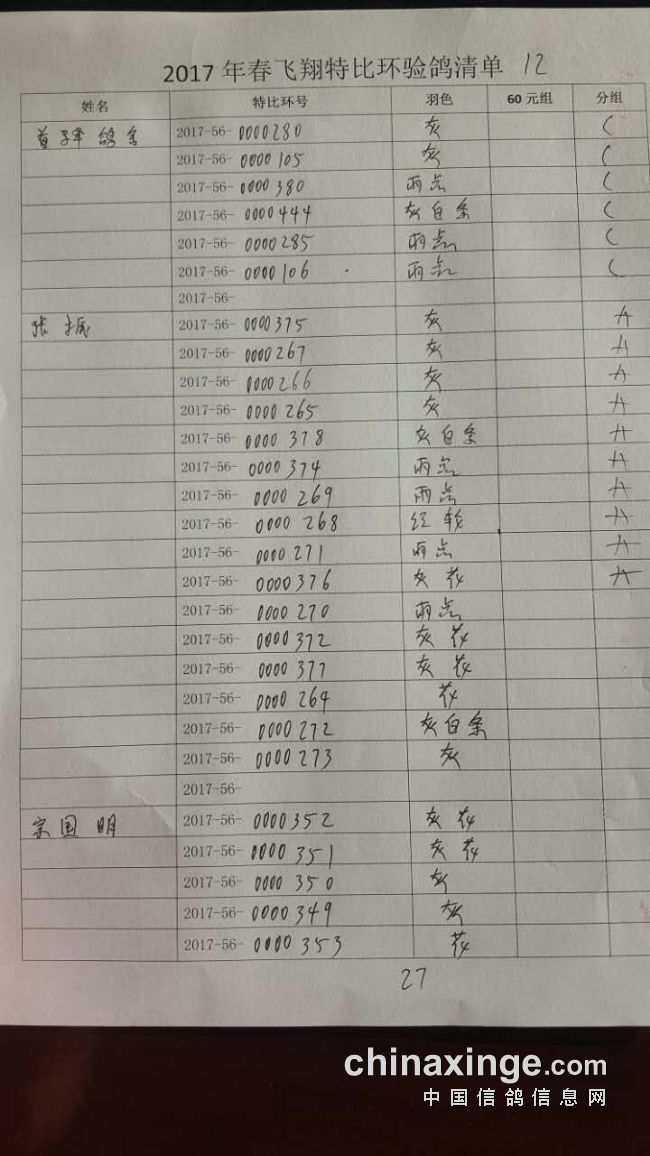 2017 年春飞翔特比环验鸽清单 12
姓名 特比环号 羽色 60 元组 分组
鸽舍 2017-56- 0000280 灰 C
2017-56- 0000105 灰 C
2017-56- 0000380 雨点 C
2017-56- 0000444 灰白条 C
2017-56- 0000285 雨点 C
2017-56- 0000106 雨点 C
2017-56-
张振 2017-56- 0000375 灰 A
2017-56- 0000267 灰 A
2017-56- 0000266 灰 A
2017-56- 0000265 灰 A
2017-56- 0000378 灰白条 A
2017-56- 0000374 雨点 A
2017-56- 0000269 雨点 A
2017-56- 0000268 红轮 A
2017-56- 0000271 雨点 A
2017-56- 0000376 灰花 A
2017-56- 0000270 雨点
2017-56- 0000372 灰花
2017-56- 0000377 灰花
2017-56- 0000264 花
2017-56- 0000272 灰白条
2017-56- 0000273 灰
2017-56-
宗国明 2017-56- 0000352 灰花
2017-56- 0000351 灰花
2017-56- 0000350 灰
2017-56- 0000349 灰
2017-56- 0000353 花
27
chinaxinge.com
中国信鸽信息网